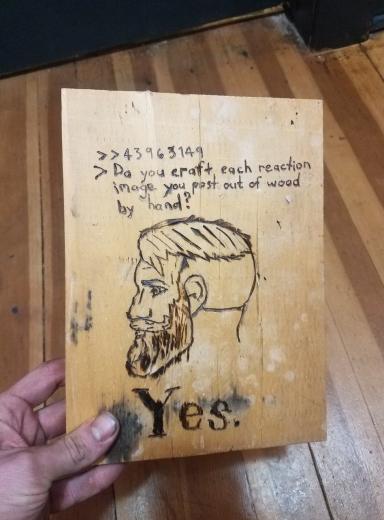 >>43963149
> Do you craft each reaction
image you post out of wood
by hand?
Yes.